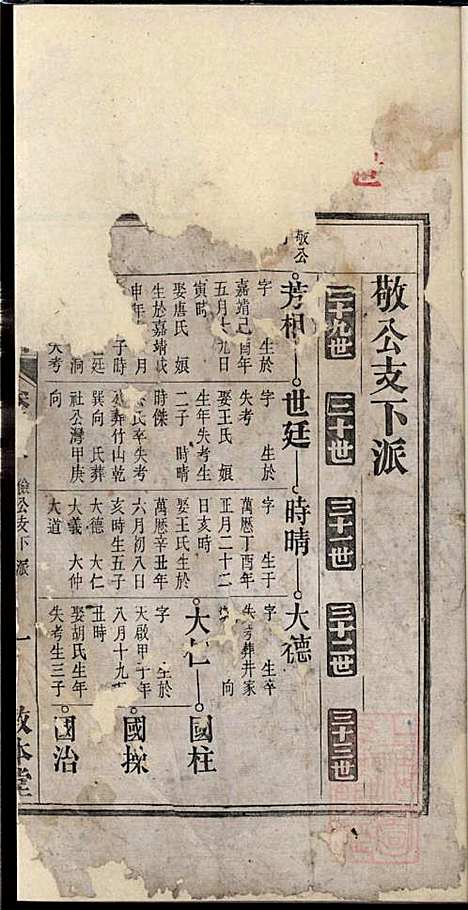 敬公支下派
二十九世
三十世
三十一世
三十二世
三十三世
敬公
芳桐
世廷
時晴
大德
字 生於
嘉靖己酉年
五月十九日
寅時
娶唐氏 娘
生於嘉靖
申年 月
子時
廷
大考
字 生於
失考
娶王氏 娘
生年失考生
二子 時晴
時傑
氏卒失考
公葬竹山乾
巽向 氏葬
社公灣甲庚
向
字 生于
萬曆丁酉年
正月二十二
日亥時
娶王氏生於
萬曆辛丑年
六月初八日
亥時生五子
大德 大仁
大義 大仲
大道
字 生卒
失考葬井家
向
大仁
國柱
字 生於
天啟甲子年
八月十九
丑時
娶胡氏生年
失考生三子
國採
國治
儉公支下派
一
敦本堂